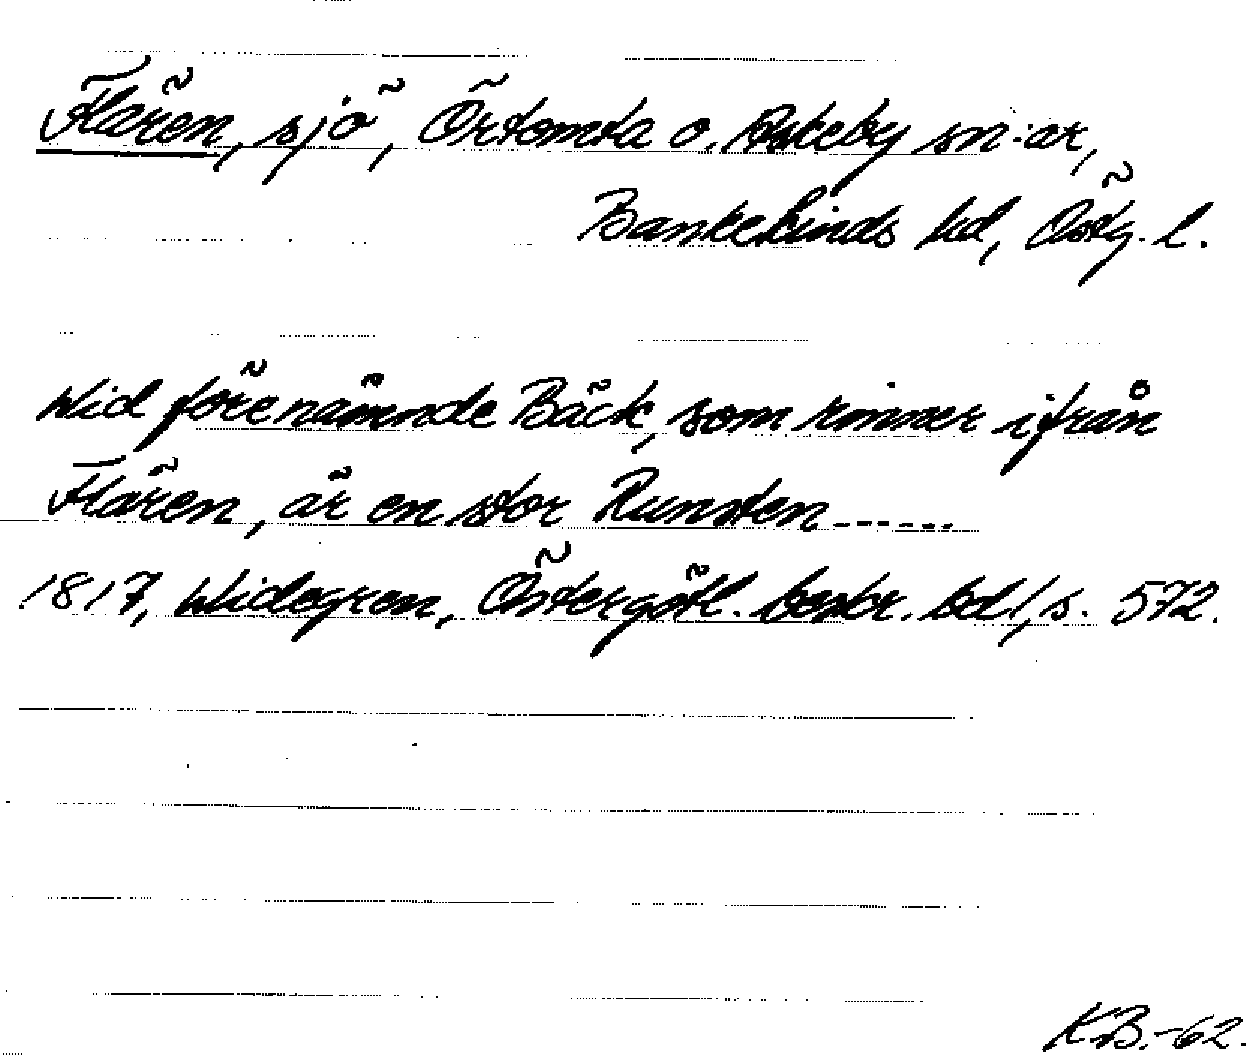 Flären, sjö, Örtomta o. Askeby sn:ar,
Bankekinds hd, Östg. l.
Wid förenämnde Bäck, som rinner ifrån
Flären, är en stor Runsten ------
1817, Widegren, Östergötl. beskr. bd 1, s. 572.
KB.-62.